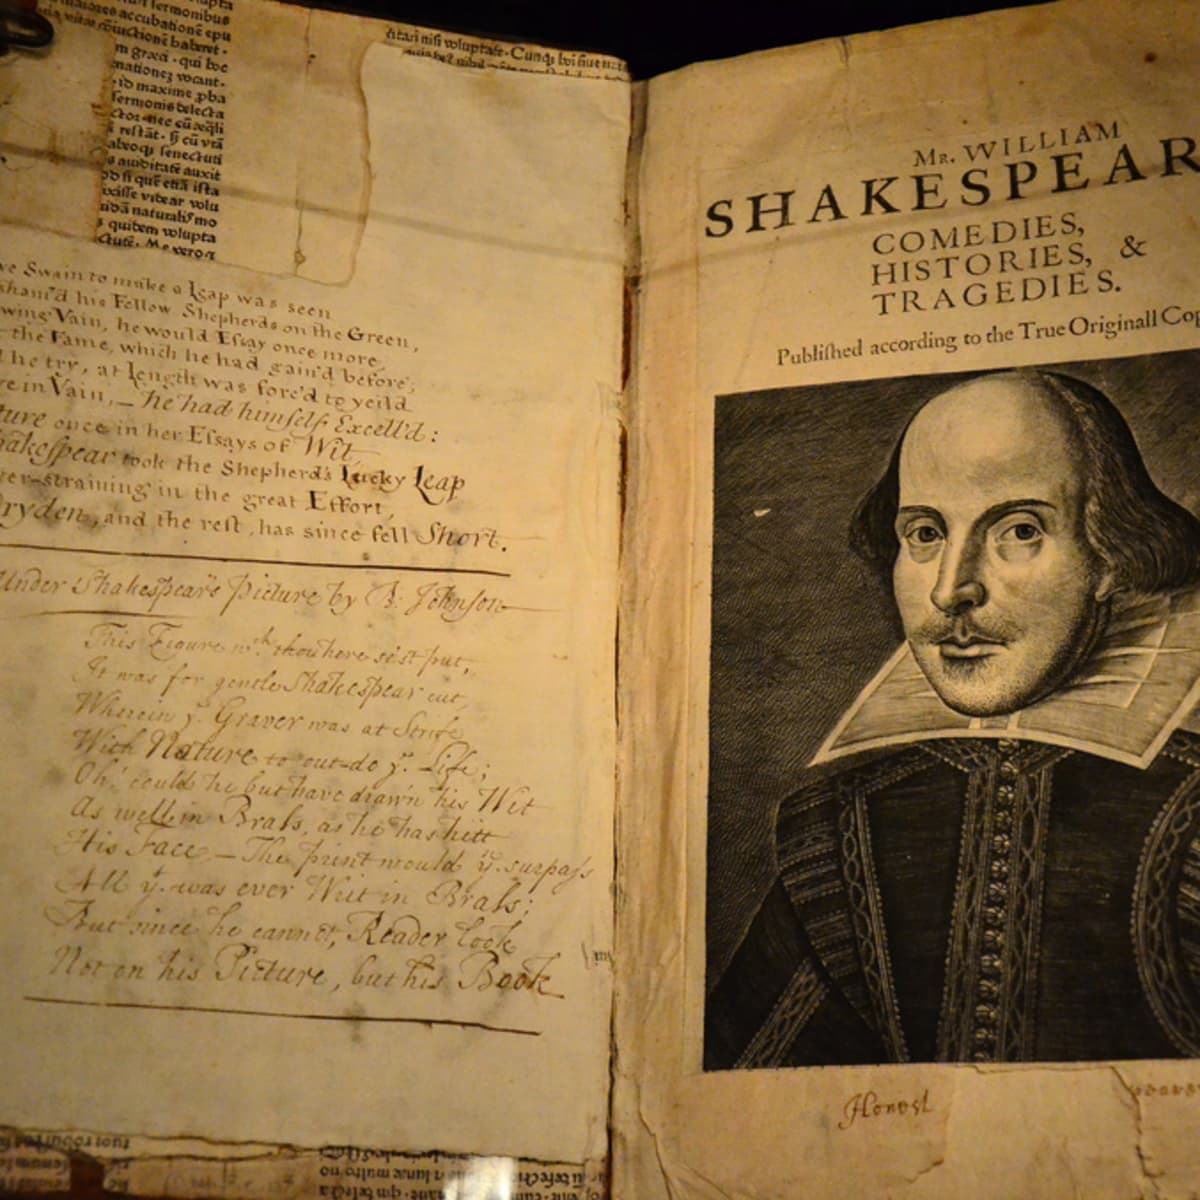 sermonibus
accubatione epu
coiunctione haberet.
m graeci. qui hoc
nationez vocant.
id maxime pba
sermonis delecta
restat.
senectuti
aviditate auxit
vitear volu
naturalis mo
quidem volupta
nisi voluptate.
Swain to make a Leap was seen
sham'd his Fellow Shepherds on the Green,
Vain, he would Essay once more,
the Fame, which he had gain'd before;
he try, at Length was forc'd to yeild
in Vain, — he had himself Excell'd:
once in her Essays of Wit
took the Shepherd's Lucky Leap
in the great Effort,
and the rest, has since fell Short.
Under Shakespear's Picture by B: Johnson
This Figure wch. thou here se'st put,
It was for gentle Shakespear cut,
Wherein ye. Graver was at Strife
With Nature to out-do ye. Life;
Oh! could he but have drawn his Wit
As well in Brass, as he has hitt
His Face — The print would yn. surpass
All yt. was ever Writ in Brass;
But since he cannot, Reader look
Not on his Picture, but his Book
Mr. WILLIAM
SHAKESPEAR
COMEDIES,
HISTORIES, &
TRAGEDIES.
Publiſhed according to the True Originall Cop
Honest